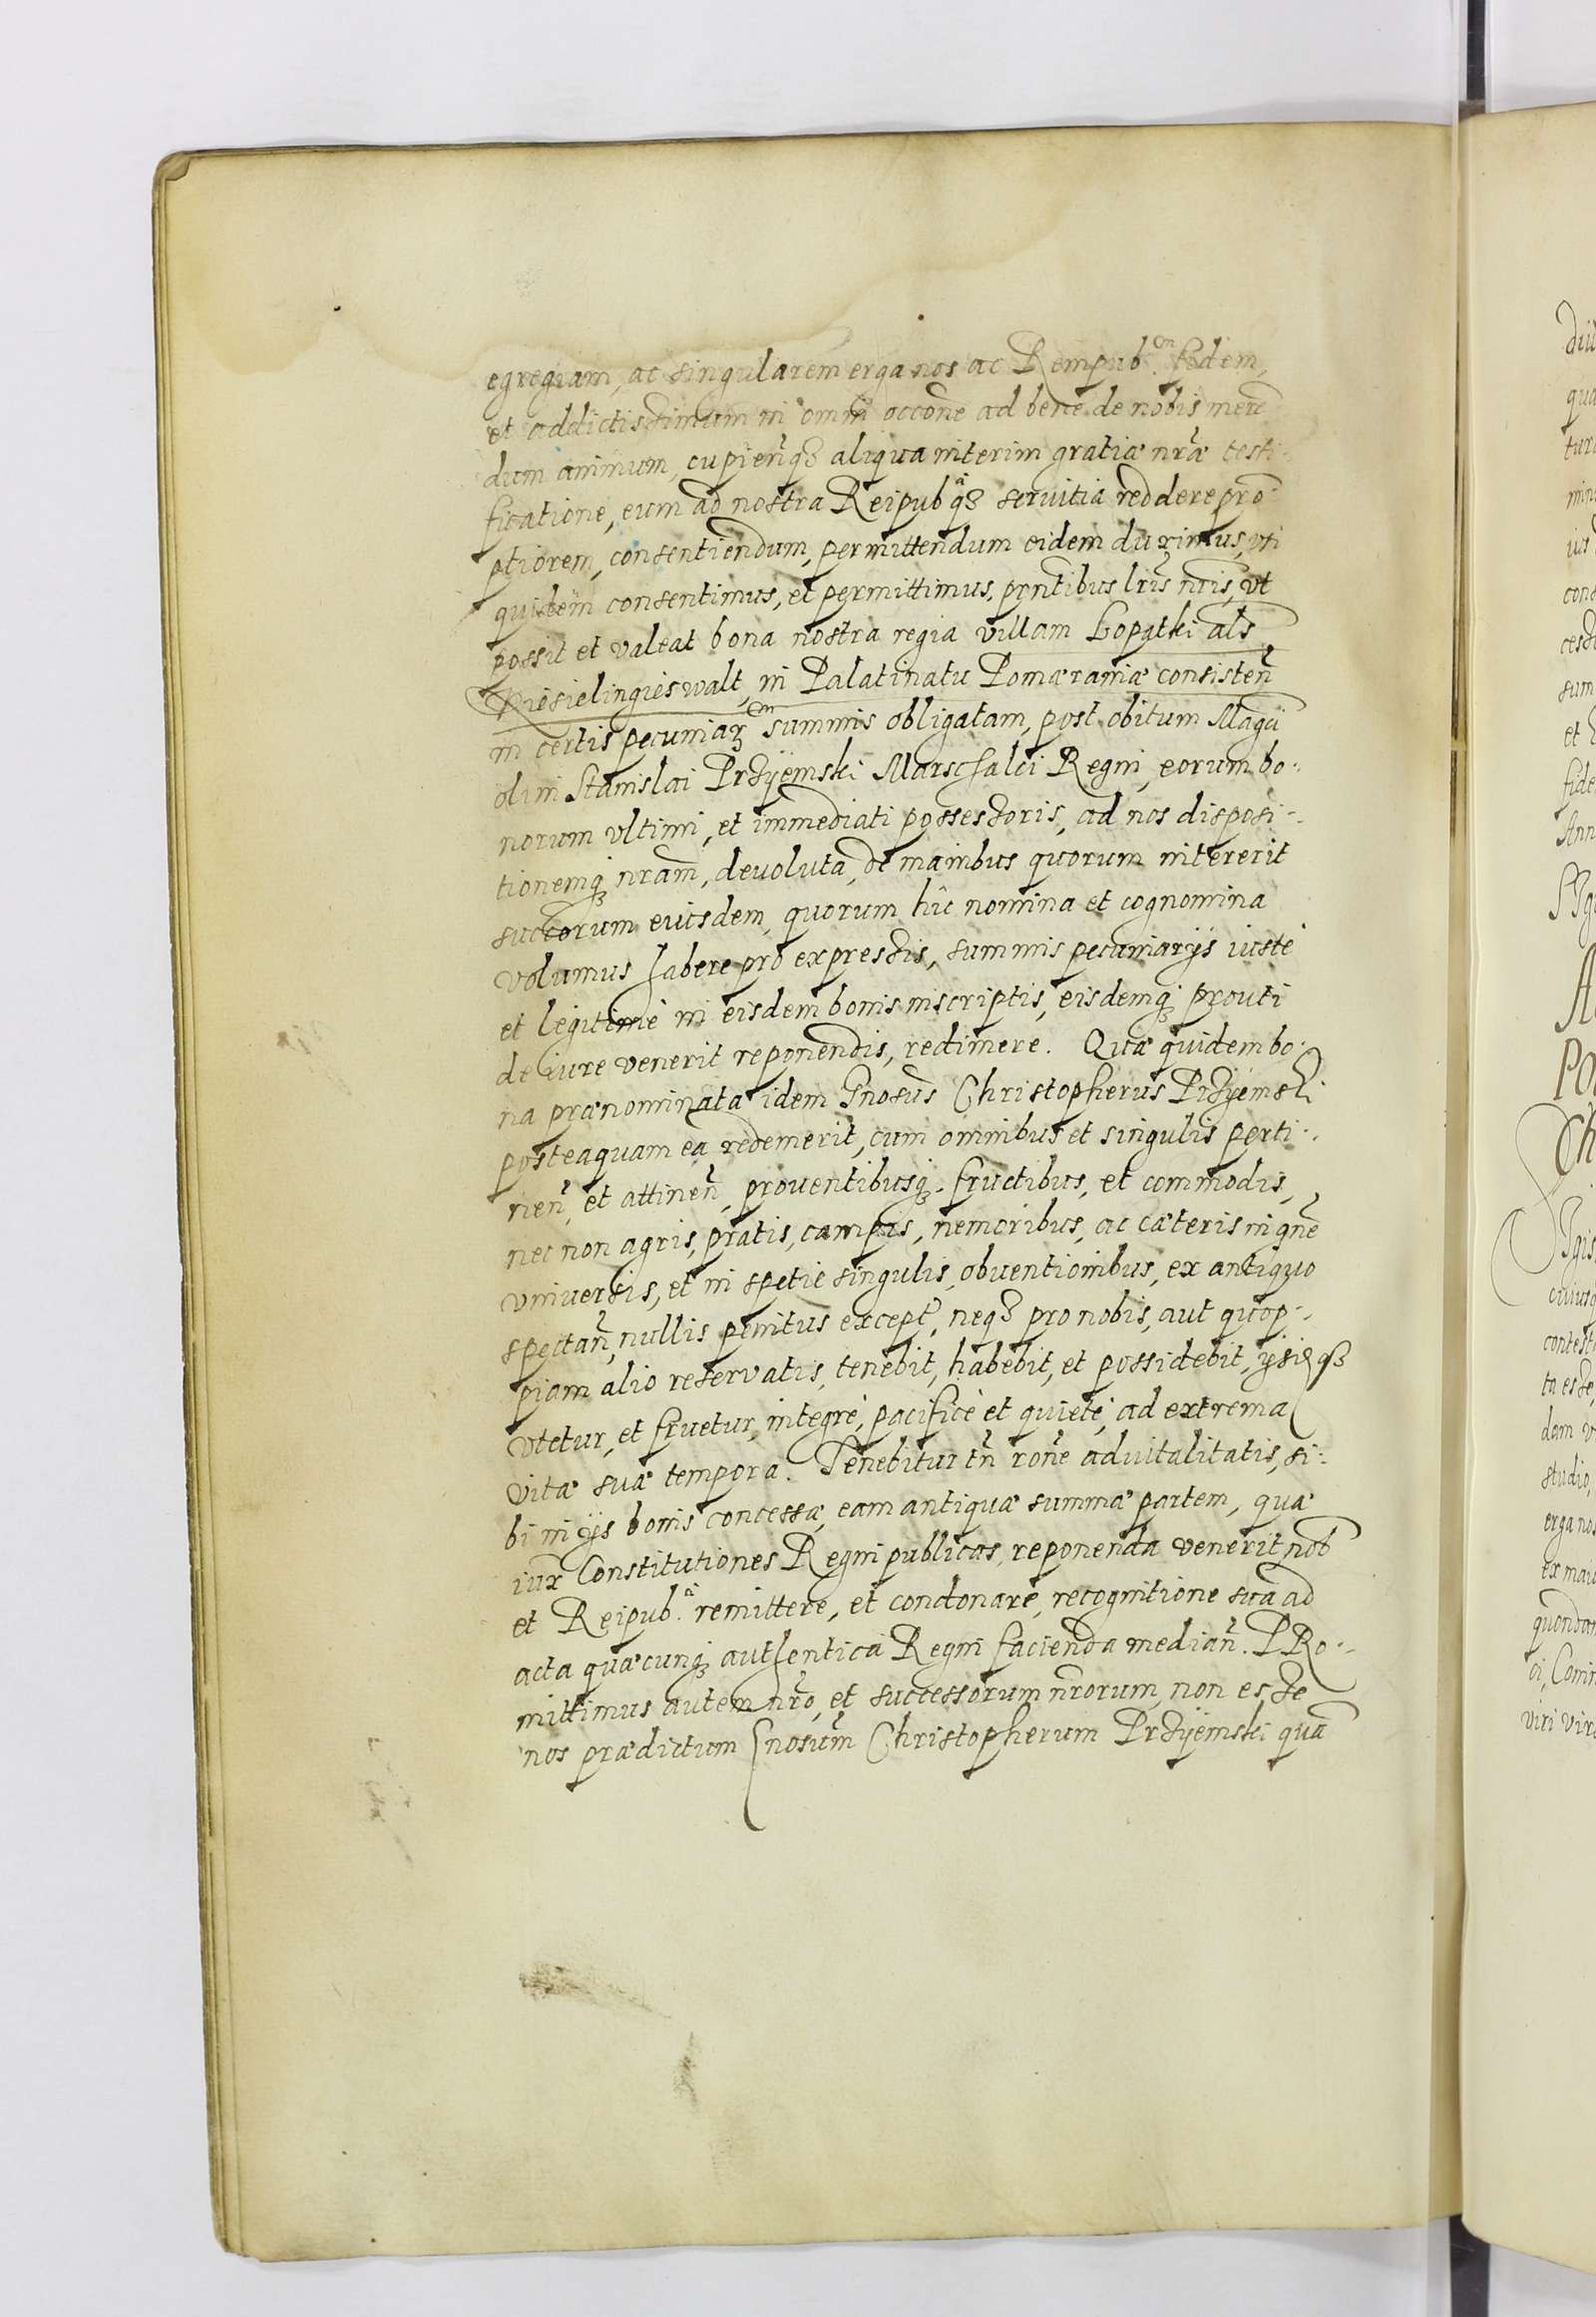 egregiam, ac singularem erga nos ac Rempub.em fidem,
et addictissimum in omni occõne ad bene de nobis meren
dum animum, cupieñqz aliqua interim gratiæ nr̃æ testi-
ficatione, eum ad nostra Reipubqz servitia reddere pro-
ptiorem, consentiendum, permittendum eidem duximus, uti
quidem consentimus, et permittimus, pñtibus lr̃is nr̃is, vt
possit et valeat bona nostra regia villam Łopatki als
Piesielingieswalt, in Palatinatu Pomæraniæ consisteñ
in certis pecuniarz summis obligatam, post obitum Magci
olim Stanislai Przÿemski Marschalci Regni, eorum bo-
norum vltimi, et immediati possessoris, ad nos dispositi-
tionemqz nr̃am, devoluta, de manibus quorum intererit
succorum eiusdem, quorum hîc nomina et cognomina
volumus habere pro expressis, summis pecuniarÿs iustè
et legitimè in eisdem bonis inscriptis, eisdemqz prouti
de iure venerit reponendis, redimere. Quæ quidem bo-
na prænominata idem Gnosus Christopherus Przÿemski
posteaquam ea redemerit, cum omnibus et singulis perti-
neñ, et attineñ, proventibusqz fructibus, et commodis,
nec non agris, pratis, campis, nemoribus, ac cæteris in gñe
vniversis, et in spetie singulis, obventionibus, ex antiquo
spectañ, nullis penitus except, neqz pro nobis, aut quop-
piam alio reservatis, tenebit, habebit, et possidebit, ÿsisqz
vtetur, et fruetur, integrè, pacificè et quietè, ad extrema
vitæ suæ tempora. Tenebitur tñ rõne advitalitatis, si-
bi in ÿs bonis concessæ, eam antiquæ summæ partem, quæ
iux Constitutiones Regni publicas, reponenda venerit nob
et Reipub. remittere, et condonare, recognitione sua ad
acta quæcunqz authentica Regni facienda mediañ. PRo-
mittimus autem nr̃o, et successorum nr̃orum, non esse
nos prædictum Gnosum Christopherum Przÿemski quã